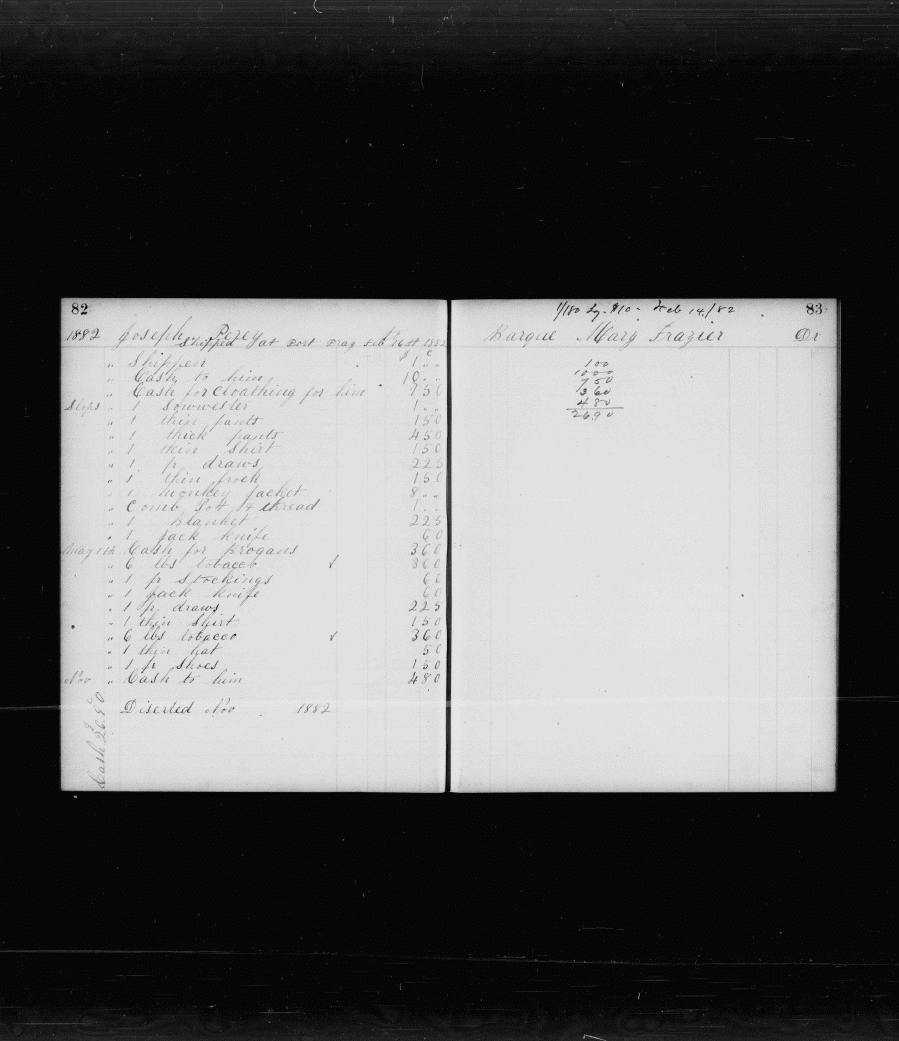 82
1882 Joseph Perey
Shipped at port Feb 16th 1882
$ c
" Shippen 1 " "
" Cash to him 10 " "
" Cash for Cloathing for him 7 50
Slops " 1 Sowwester 1 " "
" 1 thin pants 1 50
" 1 thick pants 4 50
" 1 thin Shirt 1 50
" 1 pr draws 2 25
" 1 thin frock 1 50
" 1 monkey jacket 8 " "
" Comb Pot & thread 1 " "
" 1 Blanket 2 25
" 1 jack knife 60
Cash for Brogans 3 60
" 6 lbs tobacco ✓ 3 60
" 1 pr Stockings 60
" 1 jack knife 60
" 1 pr draws 2 25
" 1 thin Shirt 1 50
" 6 lbs tobacco ✓ 3 60
" 1 thin hat 50
" 1 pr Shoes 1 50
Nov " Cash to him 4 80
Diserted Nov 1882
Cash 26.90
1/180 Ly. $10 - Feb 14/82
83
Barque Mary Frazier Dr
1 00
10 00
7 50
3 60
4 80
26 90